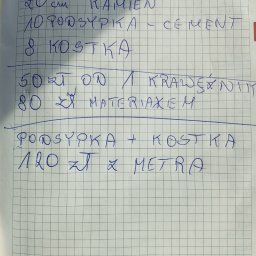 20 cm KAMIEŃ
10 PODSYPKA - CEMENT
8 KOSTKA
50 ZŁ OD 1 KRAWĘŻNIK
80 zł MATERIAŁEM
PODSYPKA + KOSTKA
120 zł z METRA